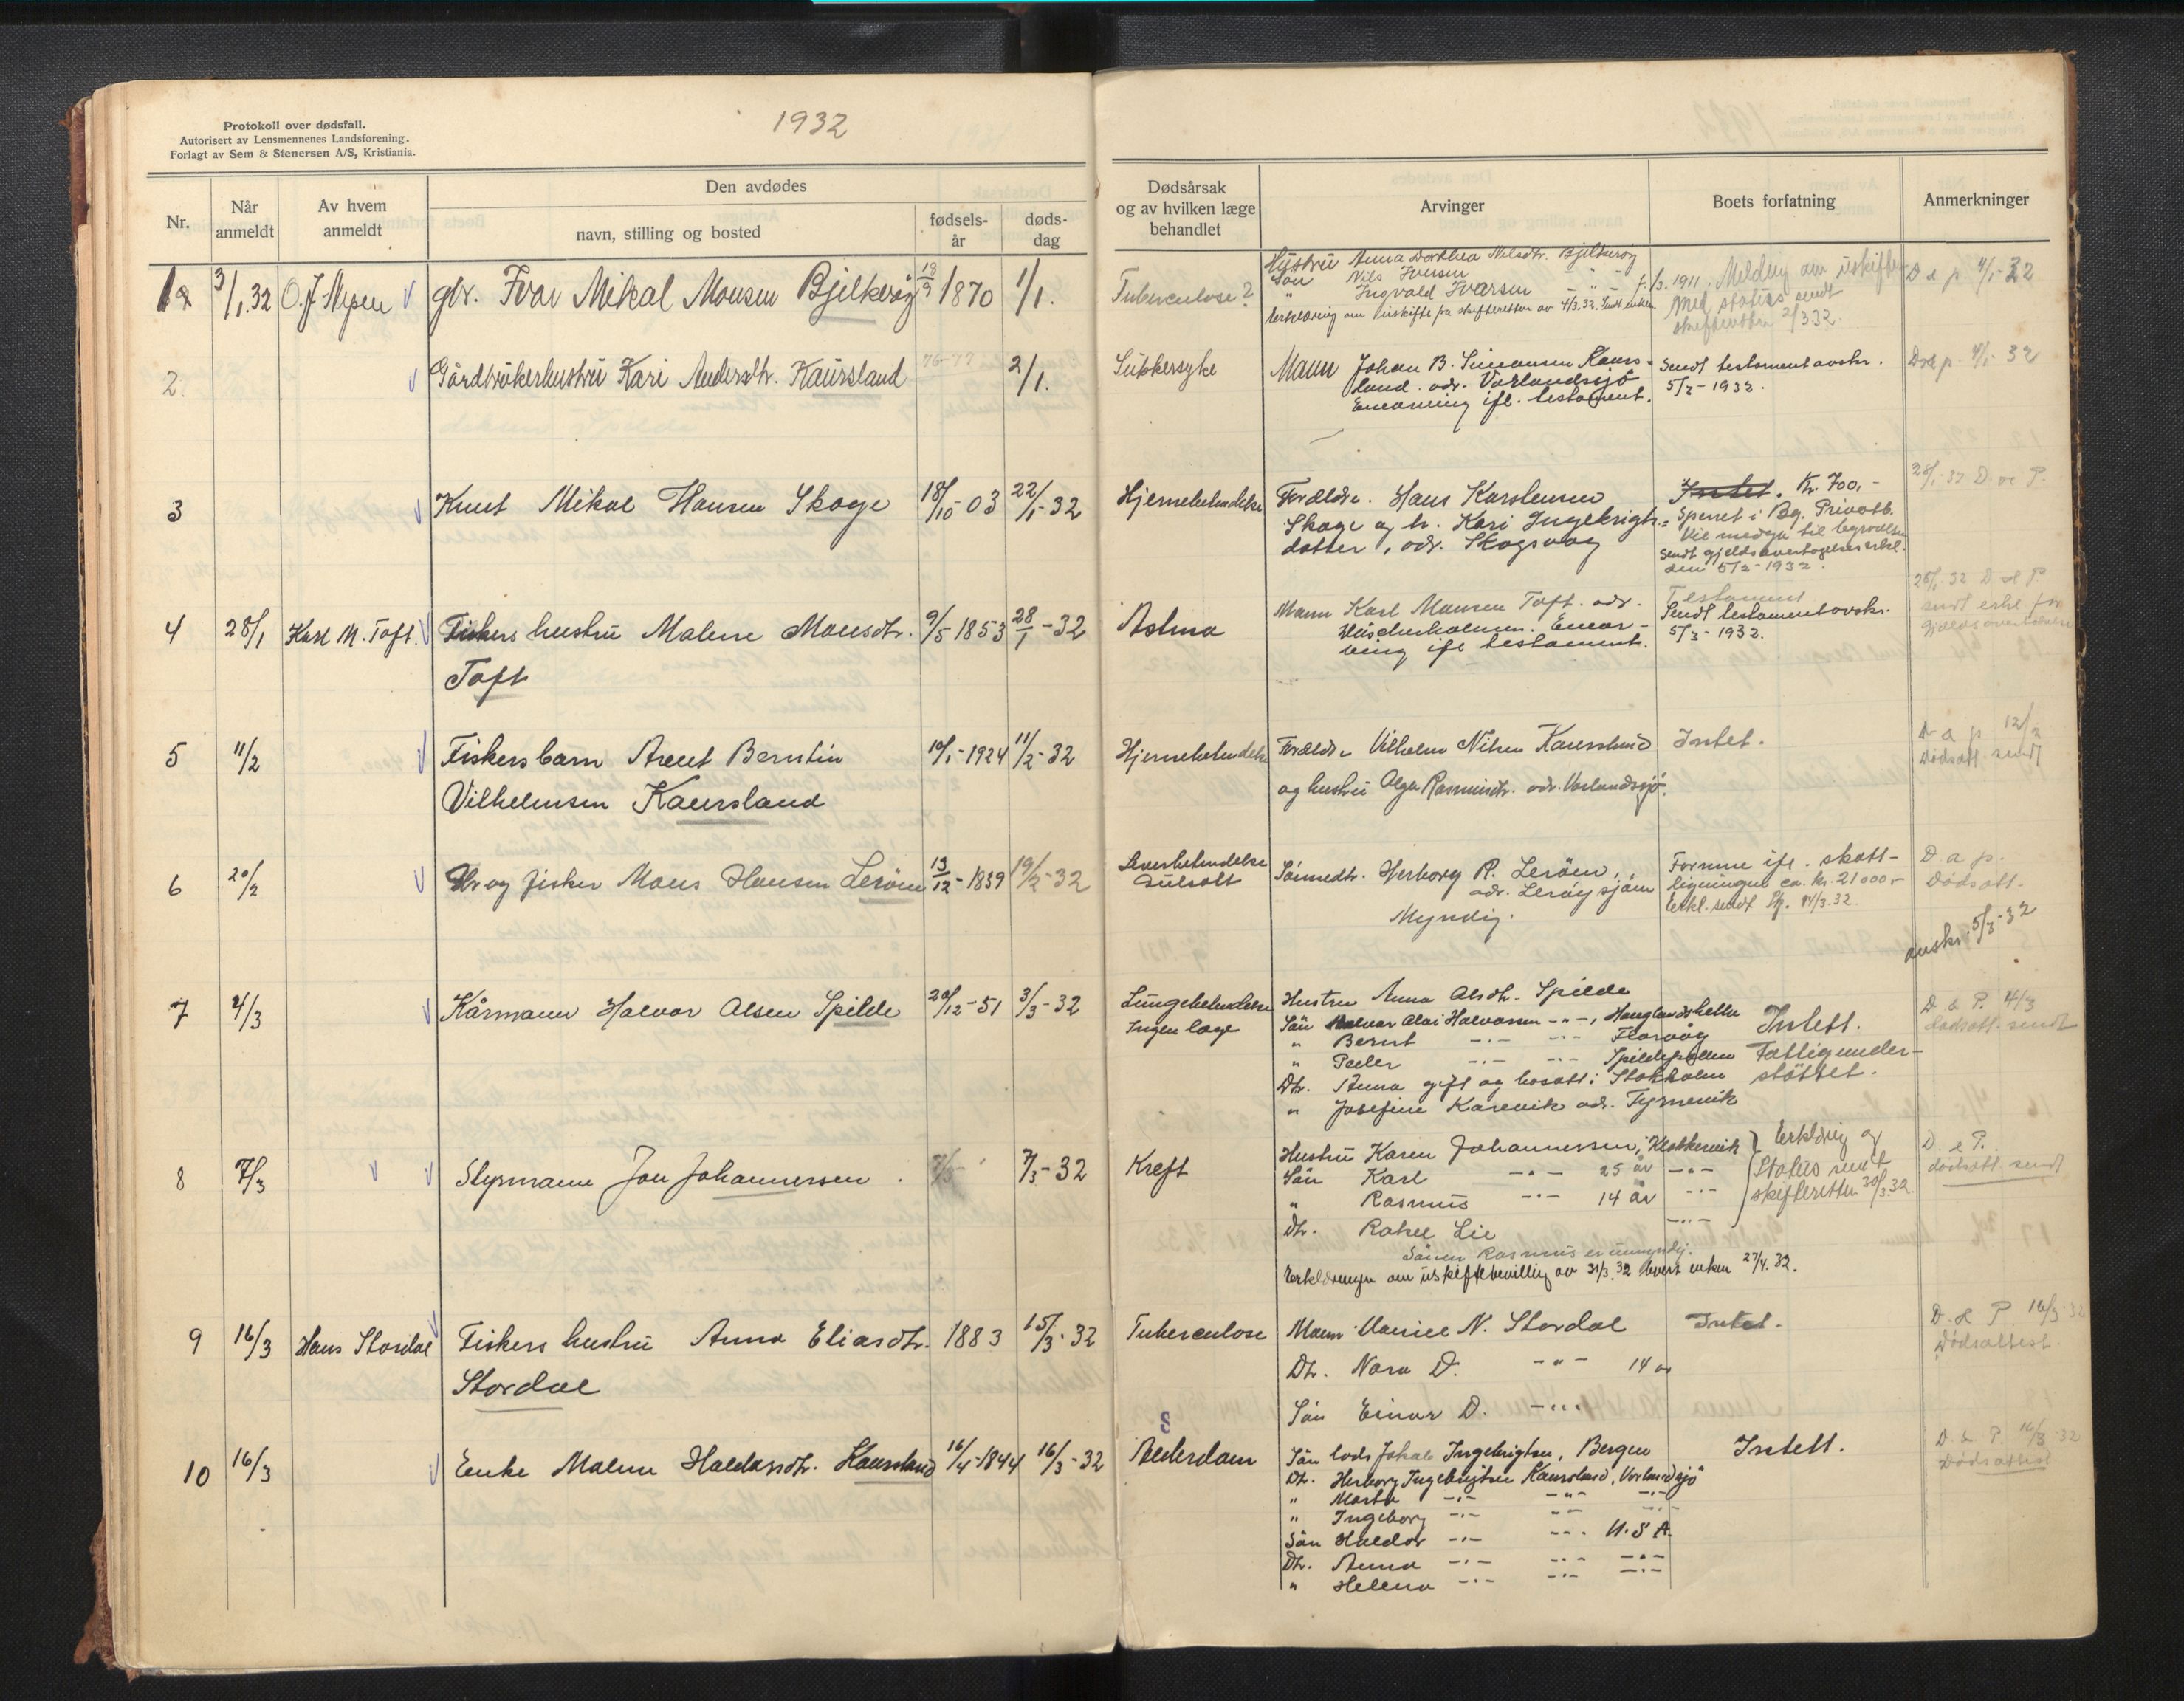 Protokoll over dødsfall.
Autorisert av Lensmennenes Landsforening.
Forlagt av Sem & Stenersen A/S, Kristiania.
1932
Nr.
Når anmeldt
Av hvem anmeldt
Den avdødes
navn, stilling og bosted
fødselsår
dødsdag
Dødsårsak og av hvilken læge behandlet
Arvinger
Boets forfatning
Anmerkninger
1 3/1.32 O. J. gbr. Ivar Mikal Monsen Bjelkerøy 18/9 1870 1/1.
Tuberculose?
Hustru Anna Dorthea Nilsdtr. Bjelkerøy
Søn Nils Iversen
" Ingvald Iversen f. /3. 1911.
Erklæring om uskifte fra skifteretten av 4/3.32. Sendt enken
Melding om uskifte
med status sendt
skifteretten 2/3 32.
D a p 4/1-32
2. Gårdbrukerhustru Kari Andersdtr. Kaursland 76-77 2/1.
Sukkersyke
Mann Johan B. Simonsen Kaurs-
land. adr. Vorlandsjø
Enearving ifl. testament.
Sendt testamentavskr.
5/2-1932.
D a p. 4/1-32
3 Knut Mikal Hansen Skoge 18/10-03 22/1-32
Hjernebetendelse
Forældre. Hans Karstensen
Skoge og h. Kari Ingebrigts-
datter, adr. Skogsvåg
Intet. Kr. 700,-
Sperret i Bg. Privatb.
Vil medgå til begravelsen
Sendt gjeldsovertagelseserkl.
den 5/2-1932.
28/1-32 D. a P.
4 28/1 Karl M. Toft. Fiskers hustru Malene Monsdtr. 9/5-1853 28/1-32
Toft
Astma
Mann Karl Monsen Toft. adr.
Enear-
ving ifl testament.
Testament
Sendt testamentavskr.
5/2-1932.
28/1 32 D a P.
sendt erkl for
gjeldsovertakelse
5 11/2 Fiskers barn Arent Berntin 10/1-1924 11/2-32
Vilhelmsen Kaursland
Hjernebetendelse
Forældre Vilhelm Nilsen Kaursland
og hustru Olga Rasmusdtr. adr. Vorlandsjø.
Intet.
D a p 12/2
Dødsatt. sendt
6 20/2 Gbr og fisker Mons Hansen Lerøen 13/12-1839 19/2-32
Leverbetendelse
Gulsott
Sønnedtr. Herborg R. Lerøen,
adr. Lerøy sjøen
Myndig.
Formue ifl. skatt-
ligningen ca. kr. 21000,-
Erkl. sendt Skj. 14/3.32.
D a p.
Dødsatt.
avskr. 5/3-32
7 4/3 Kårmann Halvor Olsen Spilde 20/12-51 3/3-32
Lungebetendelse
Ingen læge
Hustru Anna Olsdtr. Spilde
Søn Halvor Olai Halvorsen -"-, Hauglandshella
" Bernt -"- -"- Florvåg
" Peder -"- -"- Spildepollen
Dtr. Anna gift og bosatt i Stokholm
" Josefine Karevik adr. Tyrnevik
Intett.
Fattigunder-
støttet.
D a P. 4/3
dødsatt. sendt
8 7/3 Styrmann Jon Johannersen. 7/3-32
Kreft
Hustru Karen Johannessen, Klokkervik
Søn Karl -"- 25 år -"-
" Rasmus -"- 14 år -"-
Dtr. Rakel Lie -"-
Sønen Rasmus er umyndig.
Erklæringen om uskiftebevilling av 31/3.32 levert enken 27/4.32.
Erklæring og
Status sendt
skifteretten 30/3.32.
D. a P.
dødsatt. sendt
9 16/3 Hans Stordal Fiskers hustru Anna Eliasdtr. 1883 15/3-32
Stordal
Tuberculose
Mann N. Stordal
Dtr. Nora D. -"- 14 år
Søn Einar D. -"-
Intet.
D. a P. 16/3-32
Dødsattest.
S
10 16/3 Enke Malene Haldorsdtr. Kaursland 16/4-1844 16/3-32
Alderdom
Søn lods Jakob Ingebrigtsen, Bergen
Dtr. Herborg Ingebrigtsen Kaursland, Vorlandsjø
" Marta -"- -"- -"-
" Ingeborg -"- -"- -"-
Søn Haldor -"- -"- U.S.A.
Dtr. Anna -"- -"- -"-
" Helena -"- -"- -"-
Intett.
D. a P. 16/3-32
Dødsattest